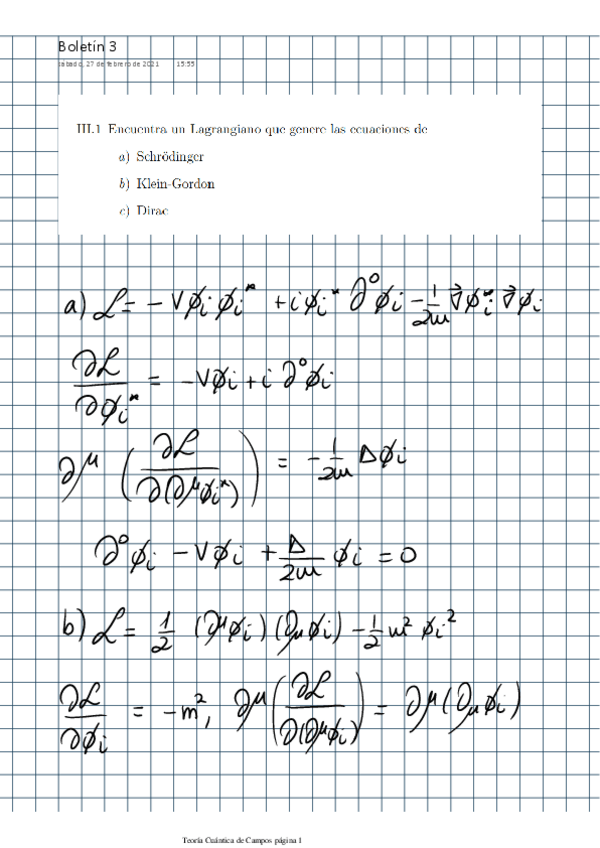 Boletín 3
sábado, 27 de febrero de 2021 15:55
III.1 Encuentra un Lagrangiano que genere las ecuaciones de
a) Schrödinger
b) Klein-Gordon
c) Dirac
a) ℒ = - V ϕi ϕi* + i ϕi* ∂⁰ ϕi - 1/2m ∇⃗ϕi* ∇⃗ϕi
∂ℒ/∂ϕi* = -Vϕi + i ∂⁰ϕi
∂^μ (∂ℒ/∂(∂^μ ϕi*)) = - 1/2m Δϕi
∂⁰ϕi - Vϕi + Δ/2m ϕi = 0
b) ℒ = 1/2 (∂^μ ϕi)(∂_μ ϕi) - 1/2 m² ϕi²
∂ℒ/∂ϕi = -m², ∂^μ (∂ℒ/∂(∂^μ ϕi)) = ∂^μ(∂_μ ϕi)
Teoría Cuántica de Campos página 1